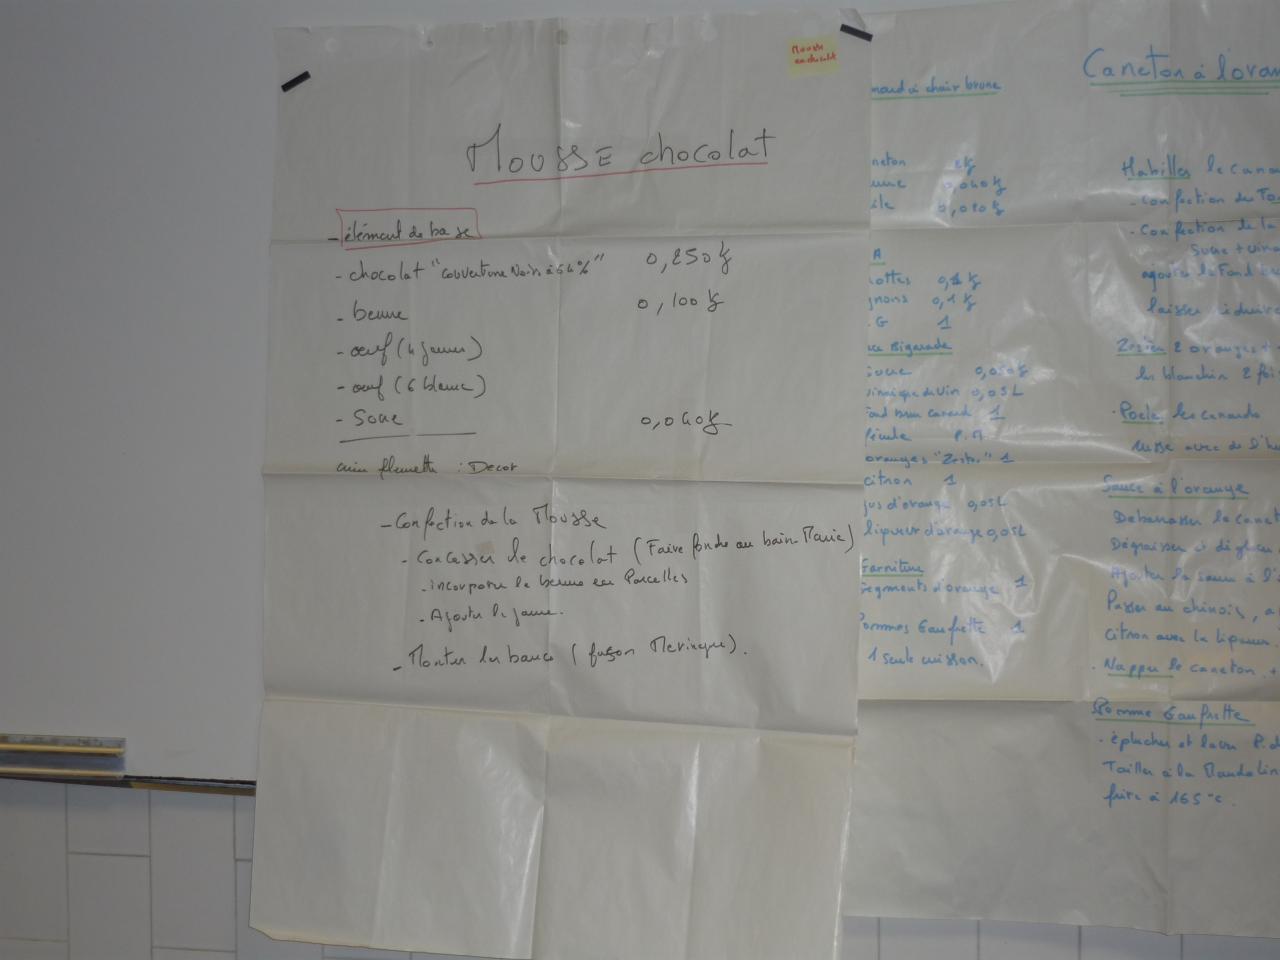 Mousse
au chocolat
Mousse chocolat
- élément de base
- chocolat "couverture Noir à 64%" 0,250 kg
- beurre 0,100 kg
- œuf (4 jaunes)
- œuf (6 blanc)
- Sucre 0,040 kg
: Decor
- Confection de la Mousse
- Concasser le chocolat (Faire fondre au bain-Marie)
- incorporer le beurre en Parcelles
- Ajouter le jaune.
- Monter les blancs (façon Meringue).
Caneton à l'oran
nard à chair brune
neton 2 kg
urre 0,040 kg
ile 0,020 kg
A
ottes 0,1 kg
gnons 0,1 kg
.G 1
uce Bigarade
Sucre
vinaigre de Vin 0,05L
Fond brun Canard 1
Fécule P.M
oranges "Zeste" 1
citron 1
jus d'orange 0,05L
liqueur d'orange 0,05L
Garniture
Segments d'orange 1
Pommes Gaufrette 1
1 seule cuisson.
Habiller le cana
- Confection du Fo
- Confection de la
Sucre + vina
ajouter le Fond b
laisser réduire
Zester 2 oranges +
les blanchir 2 foi
- Poeler les canards
avec de l'hu
Sauce à l'orange
Débarrasser le canet
Dégraisser et déglacer
Ajouter la sauce à l'
Passer au chinois, a
citron avec la liqueur.
- Napper le caneton. +
Pomme Gaufrette
- éplucher et laver P.d
Tailler à la Mandolin
frire à 165°c.